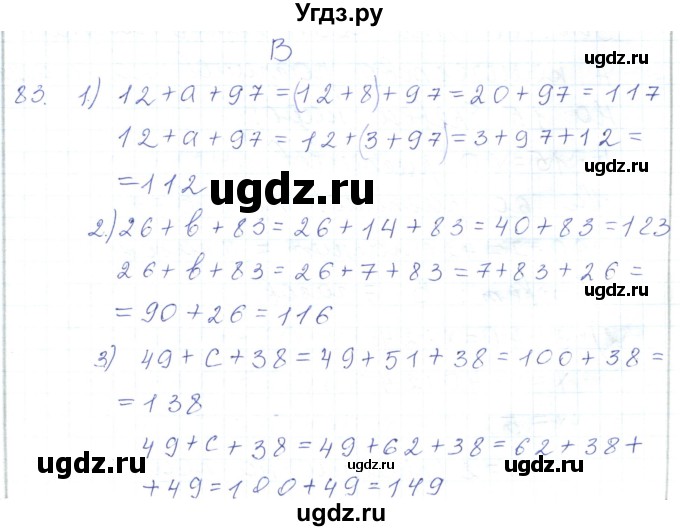 Угдз.ру
В
ugdz.ru
83. 1) 12+a+97=(12+8)+97=20+97=117
12+a+97=12+(3+97)=3+97+12=
ugdz.ru
=112
ugdz.ru
ugdz.ru
2.) 26+b+83=26+14+83=40+83=123
26+b+83=26+7+83=7+83+26=
ugdz.ru
=90+26=116
3) 49+c+38=49+51+38=100+38=
ugdz.ru
=138
49+c+38=49+62+38=62+38+
ugdz.ru
ugdz.ru
ugdz.ru
+49=100+49=149
Угдз.ру